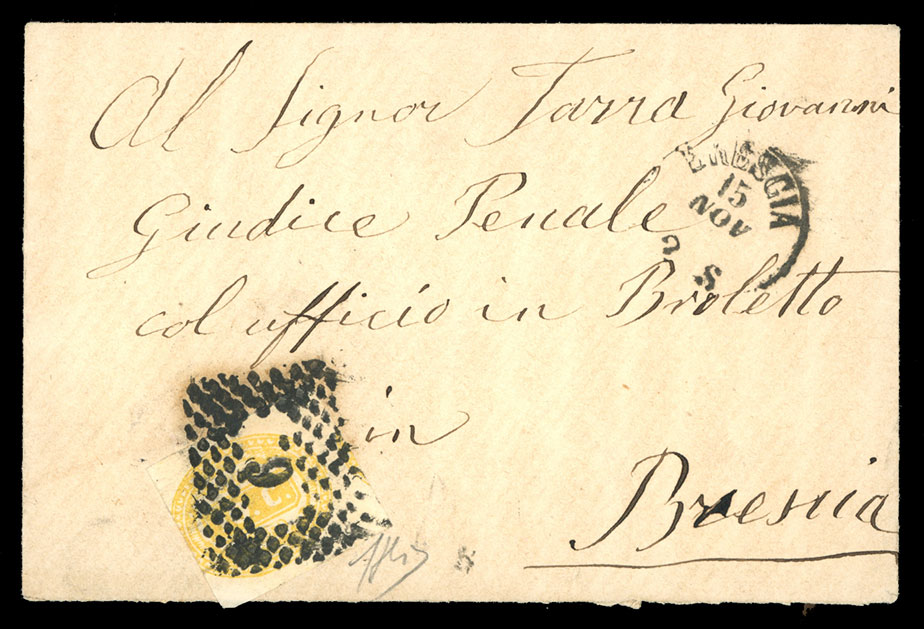 Al Signor Tarra Giovanni
Giudice Penale
col ufficio in Broletto
in
Brescia
BRESCIA
15
NOV
2 S
6